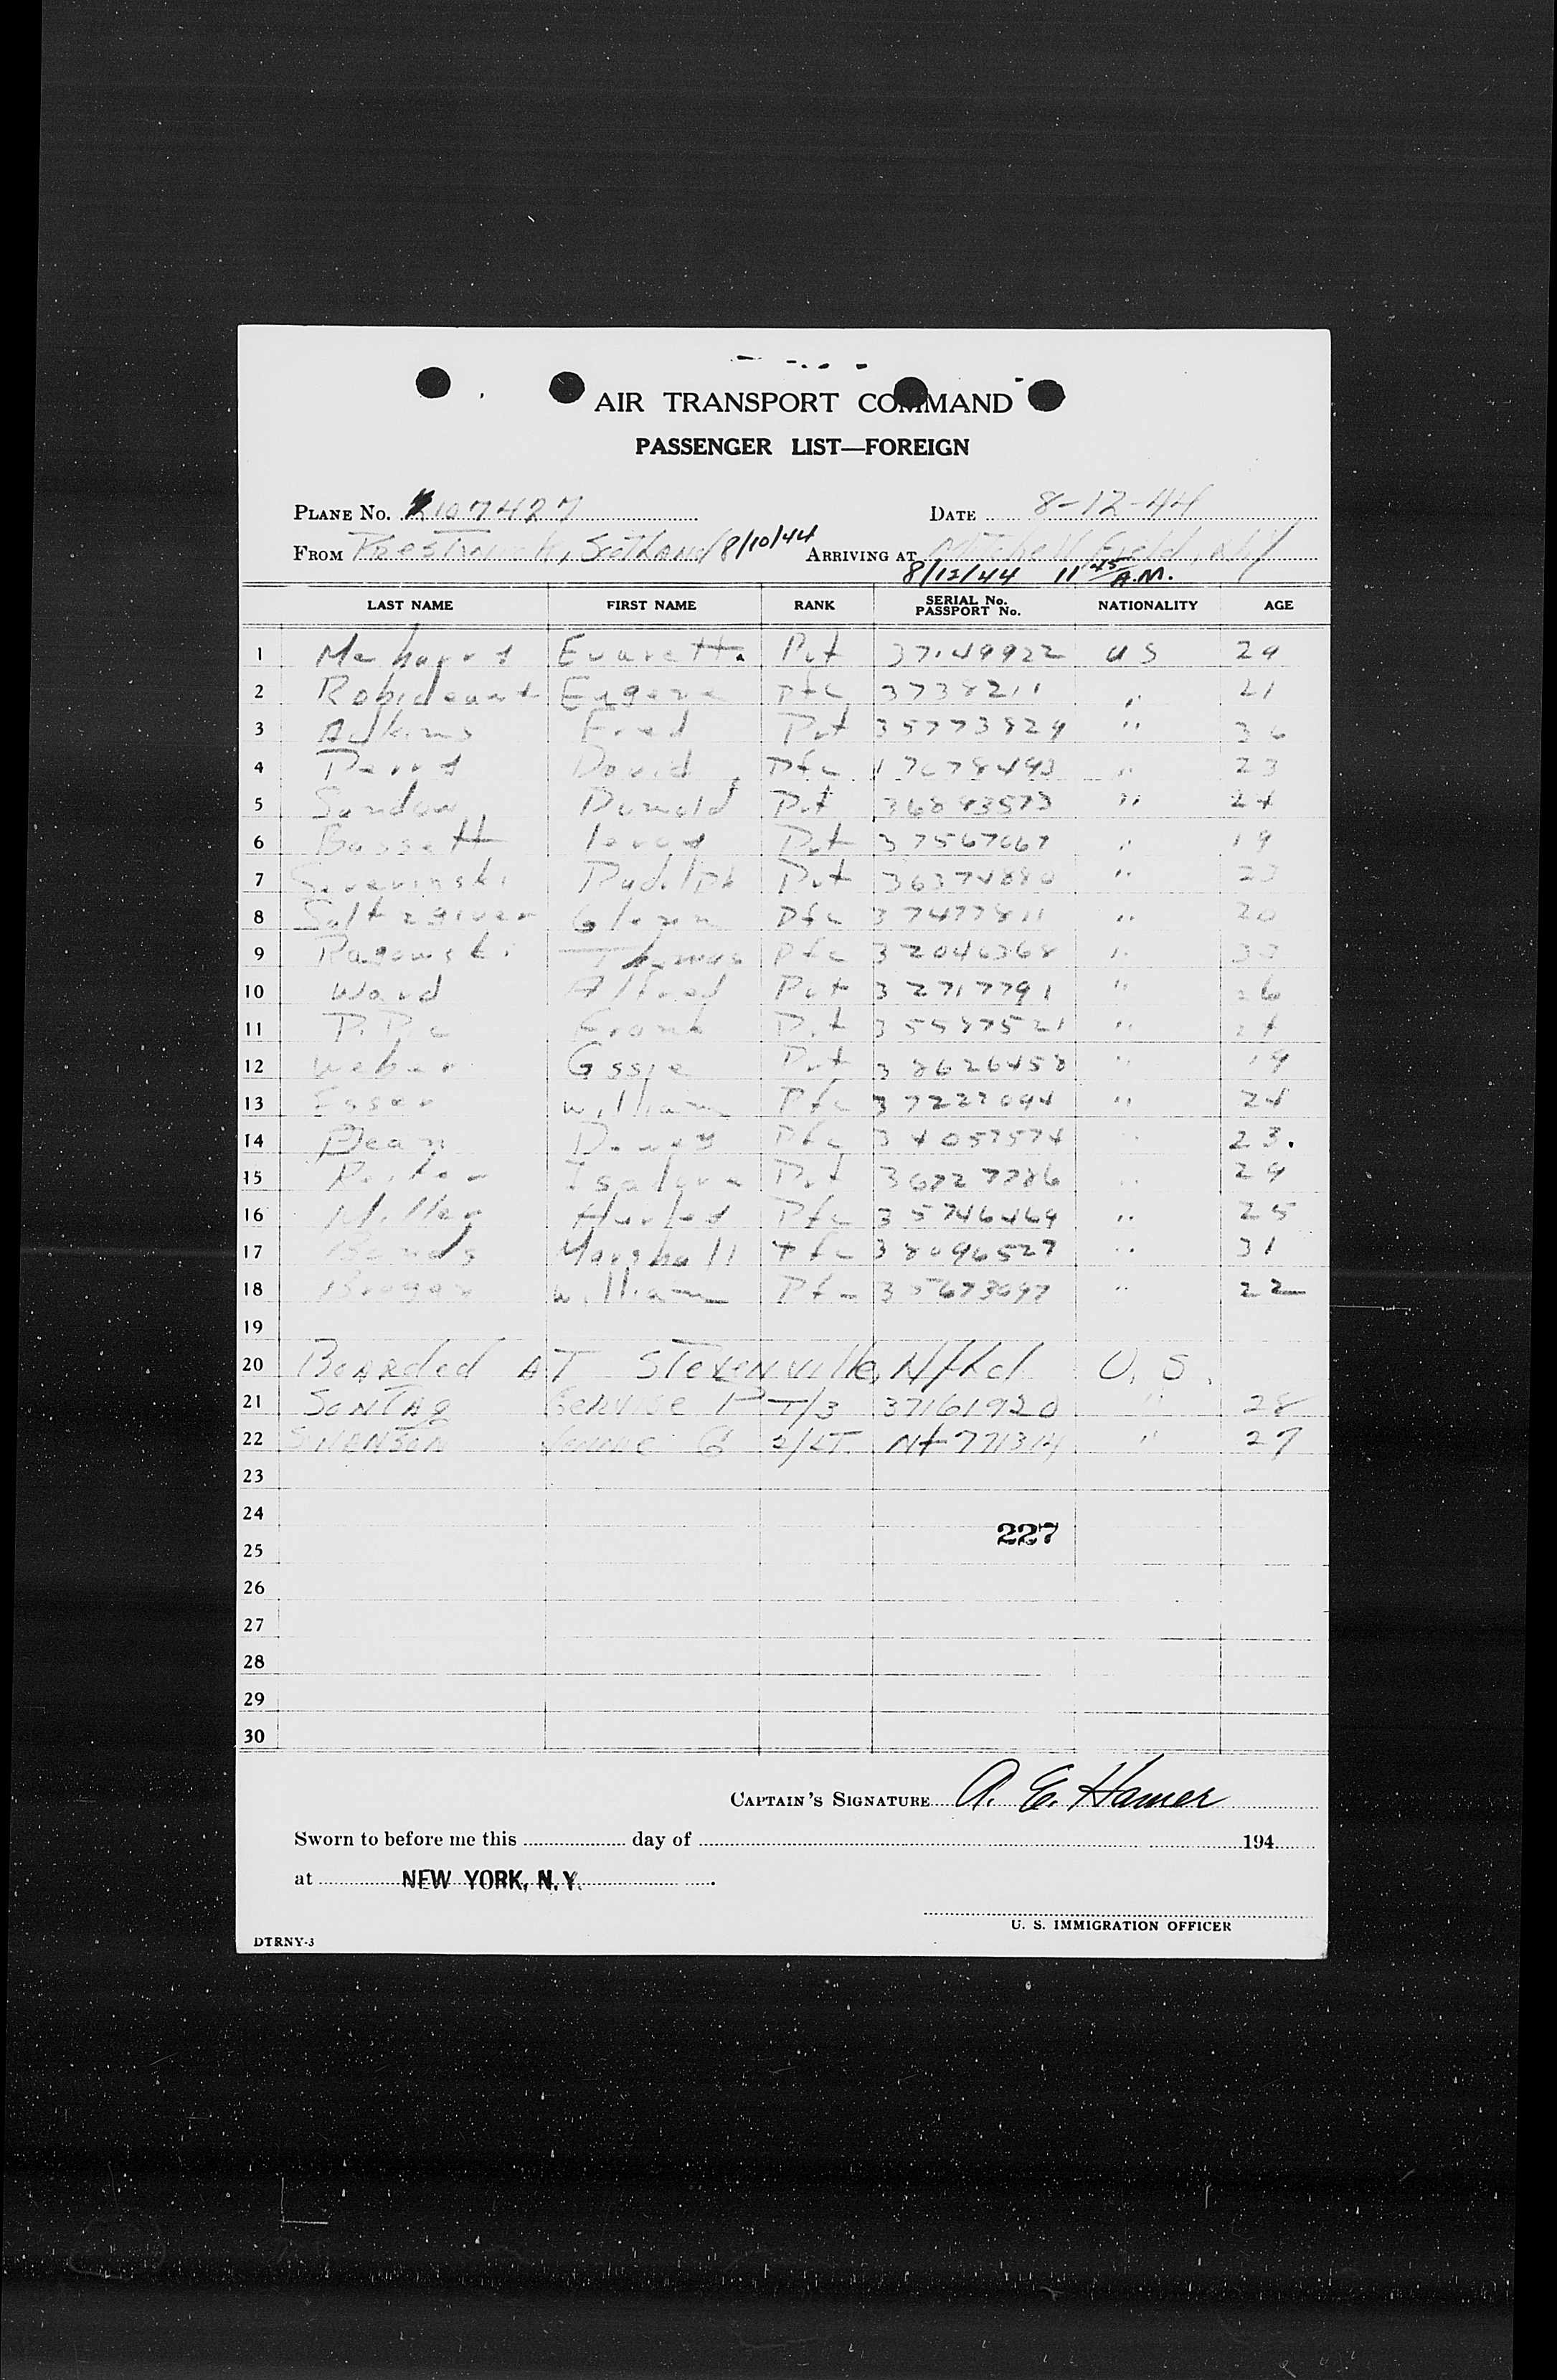 AIR TRANSPORT COMMAND
PASSENGER LIST—FOREIGN
PLANE NO. 107427 DATE 8-12-44
FROM Prestwick, Scotland 8/10/44 ARRIVING AT Mitchell Field, NY
8/12/44 11 45 A.M.
LAST NAME FIRST NAME RANK SERIAL No. PASSPORT No. NATIONALITY AGE
1 Pvt 37149922 US 29
2 Eugene Pfc 3738211 " 21
3 Adkins Fred Pvt 35773829 " 36
4 Perry David Pfc 17078493 " 23
5 Sandow Donald Pvt 36883573 " 24
6 Bassett Leroy Pvt 37567067 " 19
7 Rudolph Pvt 36374880 " 23
8 Glenn Pfc 37477811 " 20
9 Ragowski Thomas Pfc 32046368 " 33
10 Ward Alfred Pvt 32717791 " 26
11 Frank Pvt 35587521 " 24
12 Weber Ossie Pvt 38626458 " 19
13 Esser William Pfc 37222094 " 24
14 Bean Pfc 34057574 " 23.
15 Isadore Pvt 36727786 " 29
16 Miller Harley Pfc 35746469 " 25
17 Bonds Marshall Pfc 38096527 " 31
18 William Pfc 35673097 " 22
19
20 Boarded AT Stevenville, Nfld U.S.
21 Sontag P T/3 37161920 " 28
22 Swanson G 2/LT. " 27
23
24
227
25
26
27
28
29
30
CAPTAIN'S SIGNATURE A. E. Hamer
Sworn to before me this day of 194
at NEW YORK, N.Y.
U. S. IMMIGRATION OFFICER
DTRNY-3